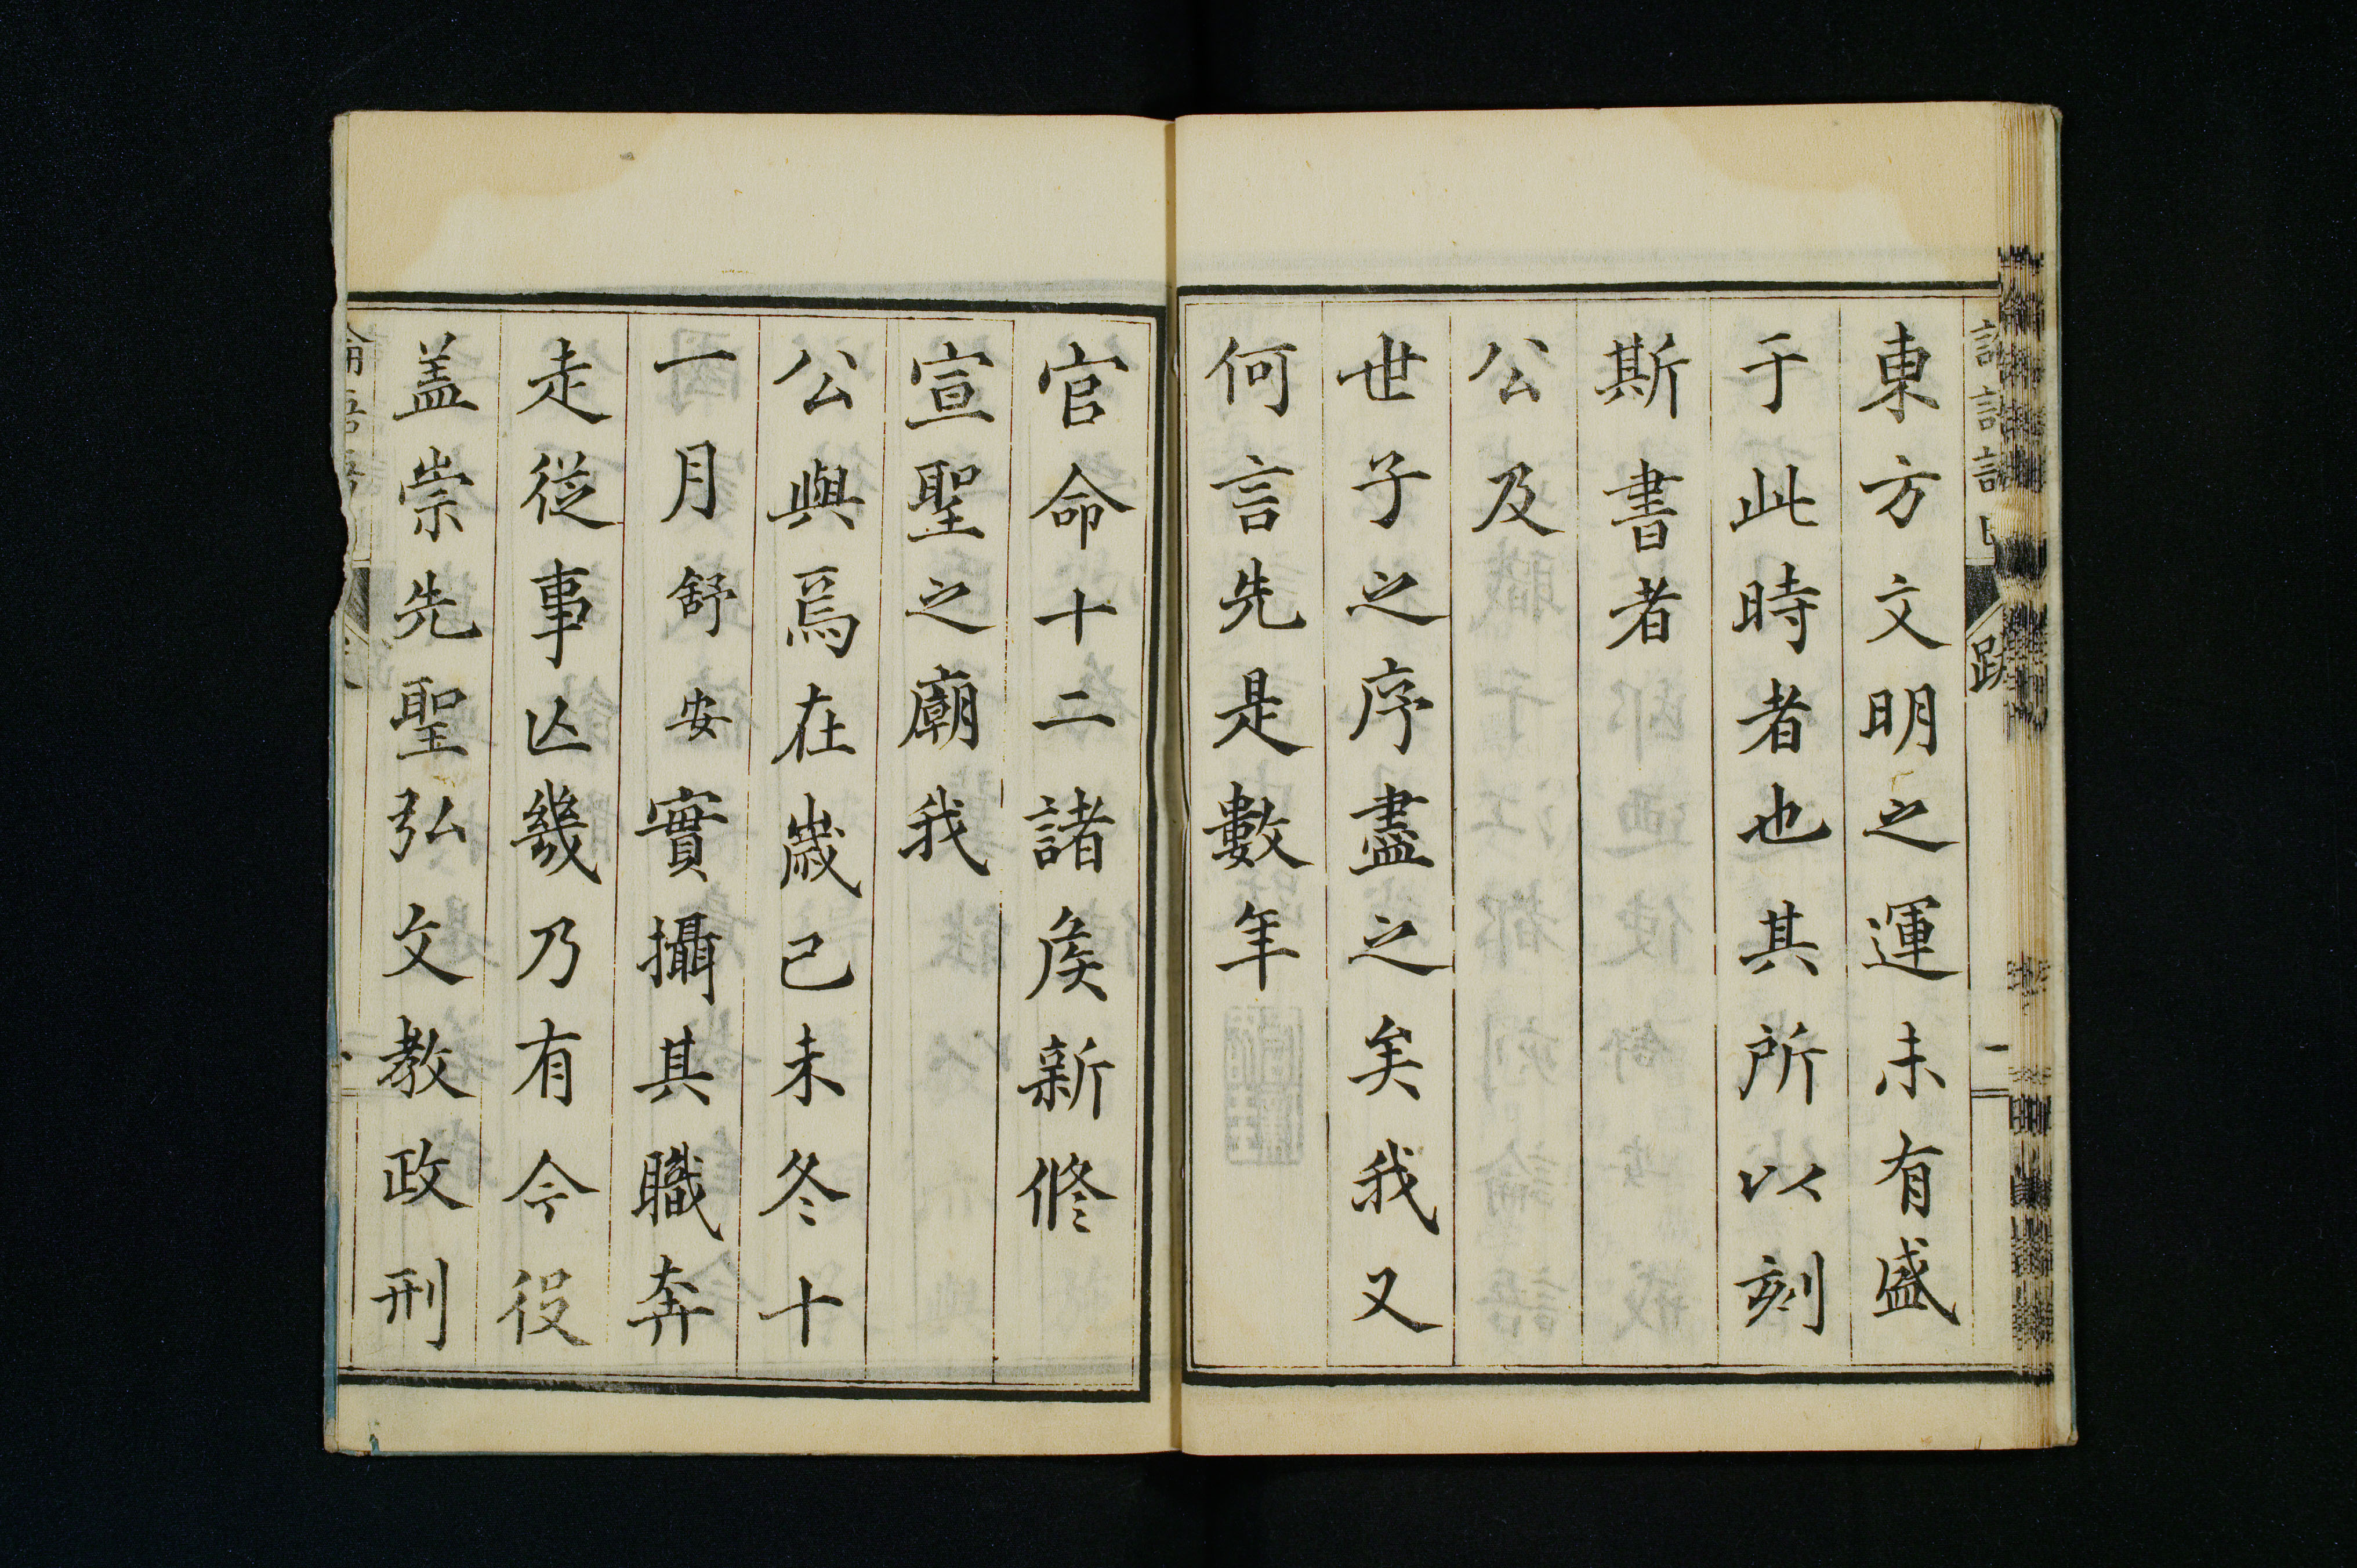 東方文明之運未有盛
于此時者也其所以刻
斯書者
公及
世子之序盡之矣我又
何言先是數年
跋
一
官命十二諸矦新修
宣聖之廟我
公與焉在歲己未冬十
一月舒安實攝其職奔
走從事亾幾乃有今役
盖崇先聖弘文教政刑